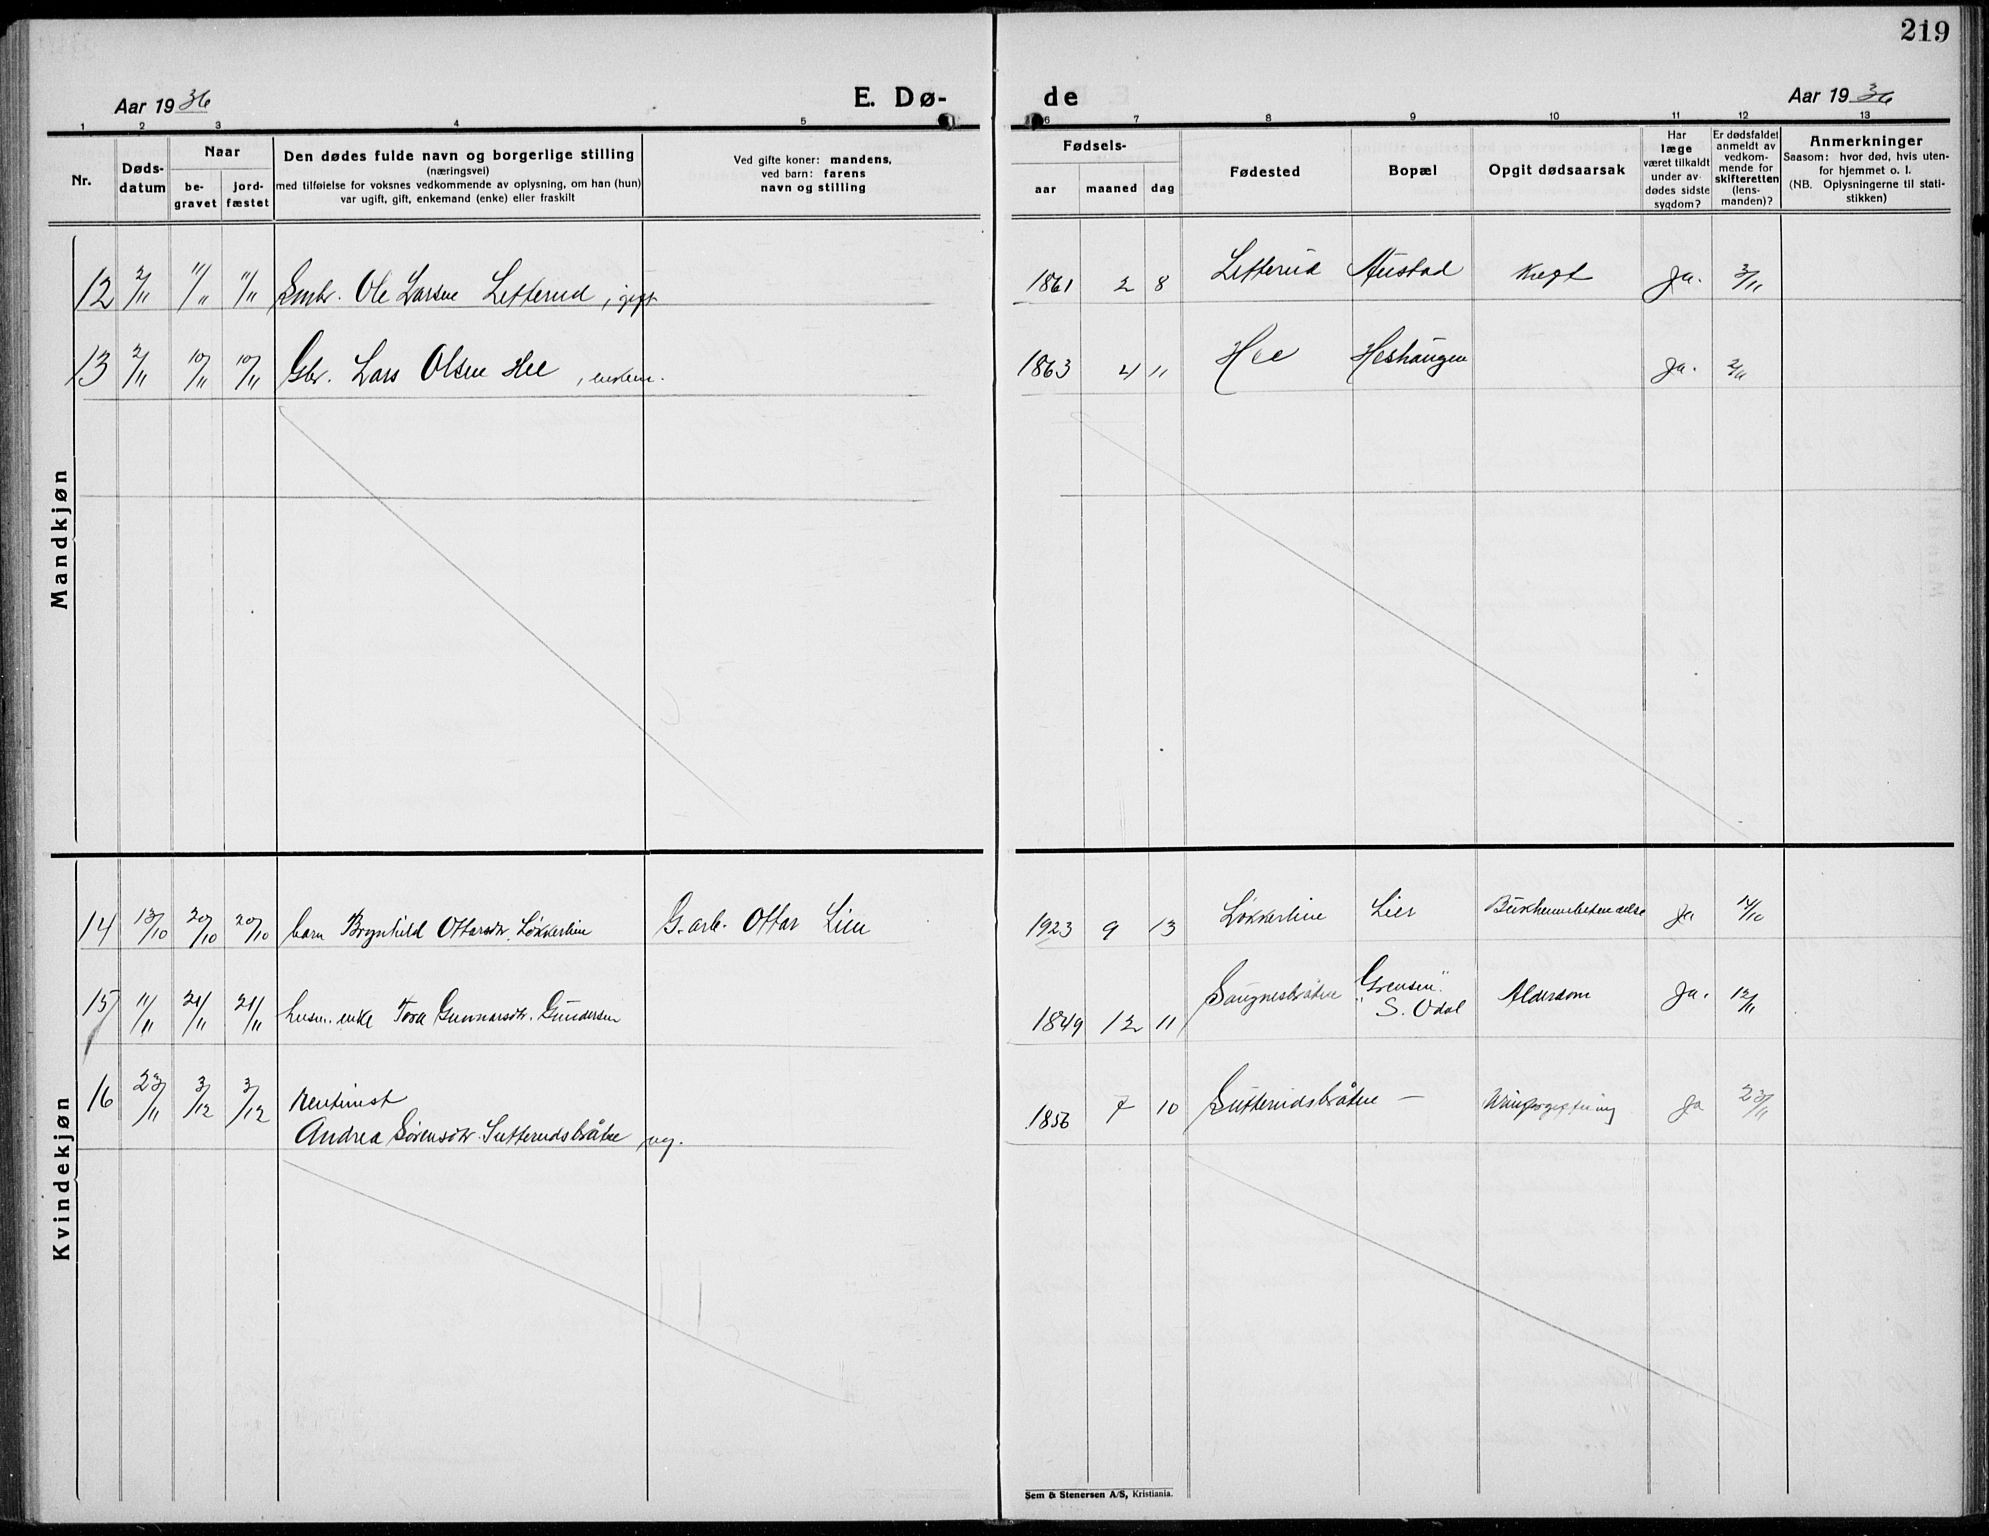 219
Aar 1936 E. Dø- de Aar 1936
1 2 3 4 5 6 7 8 9 10 11 12 13
Nr.
Døds-
datum
Naar
be-
gravet
jord-
fæstet
Den dødes fulde navn og borgerlige stilling
(næringsvei)
med tilføielse for voksnes vedkommende av oplysning, om han (hun)
var ugift, gift, enkemand (enke) eller fraskilt
Ved gifte koner: mandens,
ved barn: farens
navn og stilling
Fødsels-
aar maaned dag
Fødested
Bopæl
Opgit dødsaarsak
Har
læge
været tilkaldt
under av-
dødes sidste
sygdom?
Er dødsfaldet
anmeldt av
vedkom-
mende for
skifteretten
(lens-
manden)?
Anmerkninger
Saasom: hvor død, hvis uten-
for hjemmet o. l.
(NB. Oplysningerne til stati-
stikken)
Mandkjøn
12 2/11 11/11 11/11 Smbr. Ole Larsen Letterud, gift 1861 2 8 Letterud Austad Kreft Ja. 3/11
13 2/11 10/11 10/11 Gbr. Lars Olsen Hee, enkem. 1863 4 11 Hee Heshaugen Ja. 2/11
Kvindekjøn
14 13/10 20/10 20/10 barn Brynhild Ottarsdtr. Løkkerlien G. arb. Ottar Lien 1923 9 13 Løkkerlien Lier Bukhinnebetendelse Ja 14/10
15 11/11 21/11 21/11 husm. enke Tora Gunnarsdtr. Gundersen 1849 12 11 Saugnesbråten Grensen S. Odal Alderdom Ja. 12/11
16 23/11 3/12 3/12 Rentenist
Andrea Sørensdtr. Sutterudsbråten ug. 1856 7 10 Sutterudsbråten — Urinforgiftning Ja 23/11
Sem & Stenersen A/S, Kristiania.